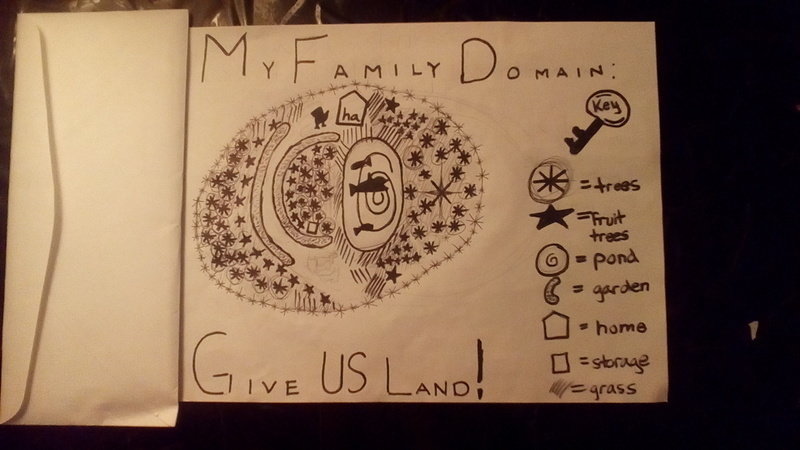 My Family Domain:
ha
Key
= trees
= fruit
trees
= pond
= garden
= home
= storage
= grass
Give US Land!